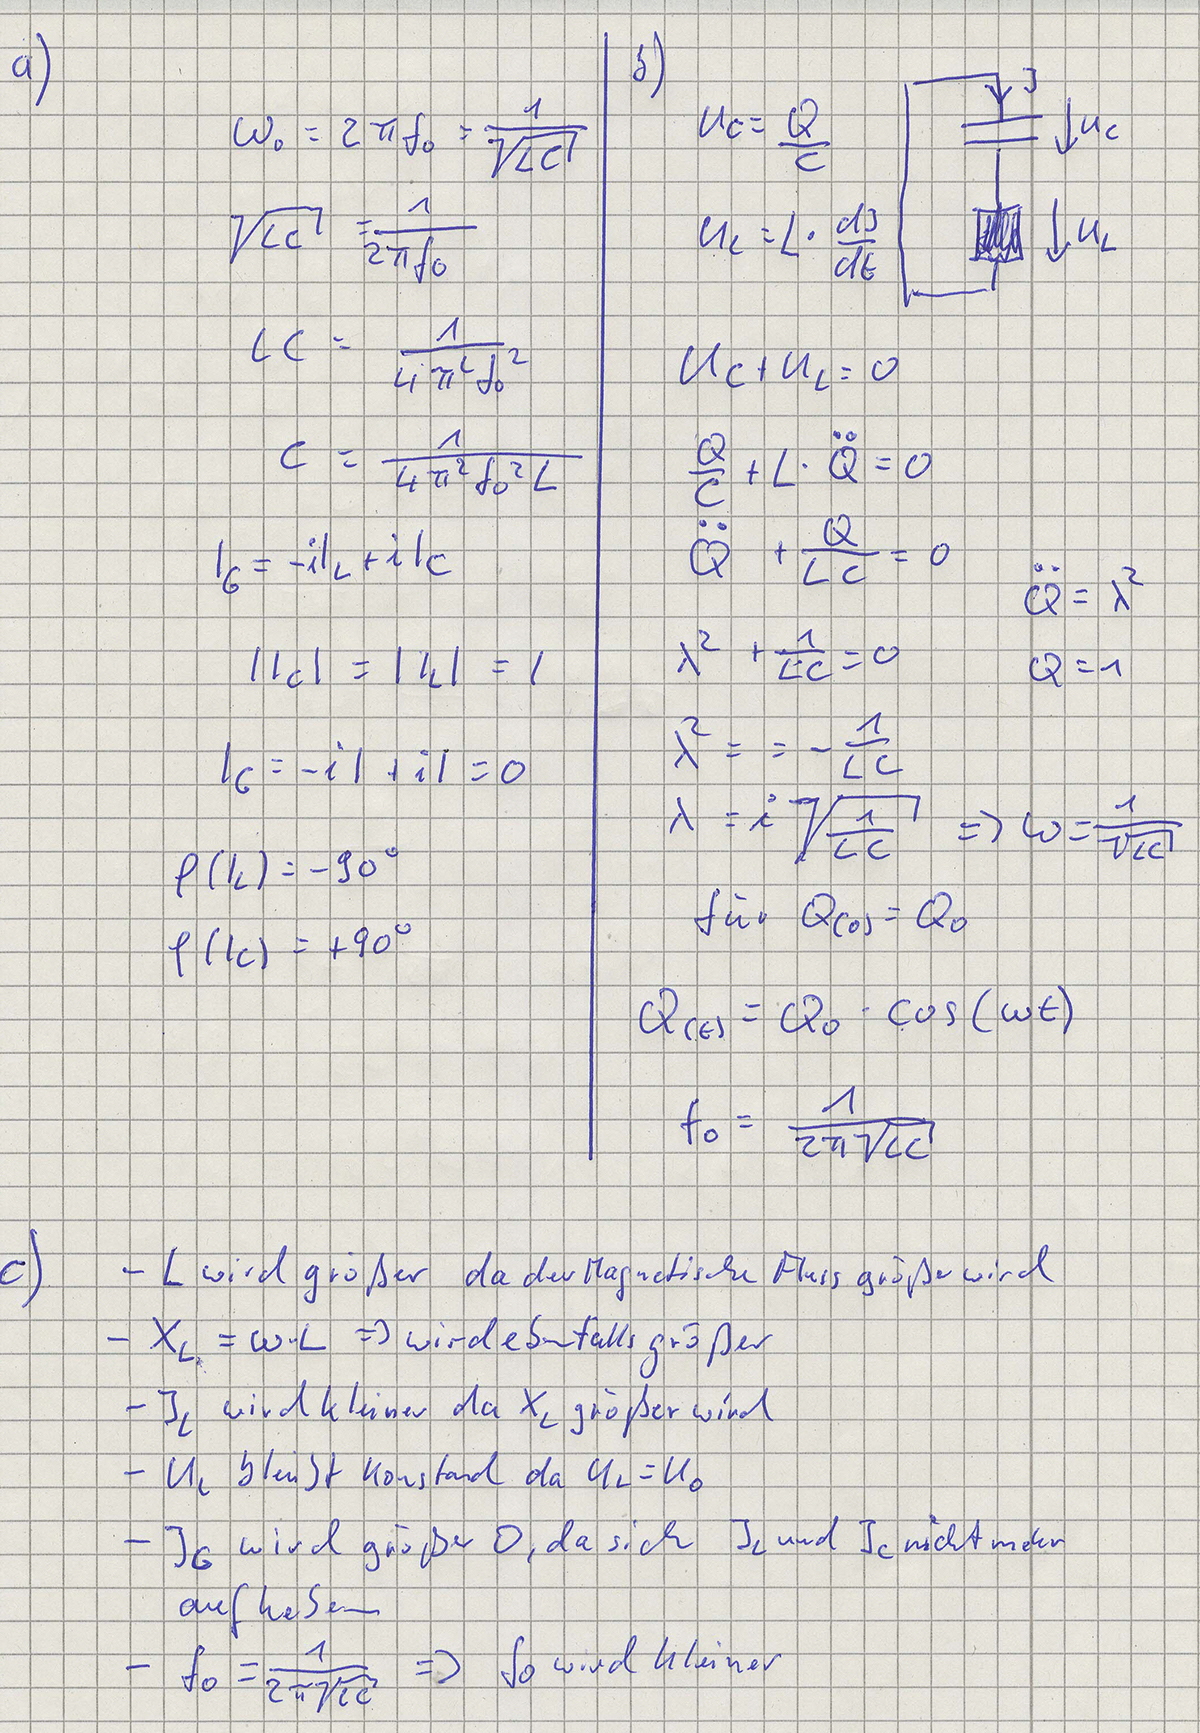 a)
ω₀ = 2πf₀ = 1/√(LC)
√(LC) = 1/(2πf₀)
LC = 1/(4π²f₀²)
C = 1/(4π²f₀²L)
I_G = -iI_L + iI_C
|I_C| = |I_L| = I
I_G = -iI + iI = 0
φ(I_L) = -90°
φ(I_C) = +90°
b)
U_C = Q/C
U_L = L · dI/dt
I
U_C
U_L
U_C + U_L = 0
Q/C + L · Q̈ = 0
Q̈ + Q/(LC) = 0
Q̈ = λ²
λ² + 1/(LC) = 0
Q = 1
λ² = = - 1/(LC)
λ = i √(1/(LC)) => ω = 1/√(LC)
für Q(0) = Q₀
Q(t) = Q₀ · cos(ωt)
f₀ = 1/(2π√(LC))
c)
- L wird größer da der Magnetische Fluss größer wird
- X_L = ω·L => wird ebenfalls größer
- I_L wird kleiner da X_L größer wird
- U_L bleibt Konstand da U_L = U₀
- I_G wird größer 0, da sich I_L und I_C nicht mehr
aufheben
- f₀ = 1/(2π√(LC)) => f₀ wird kleiner